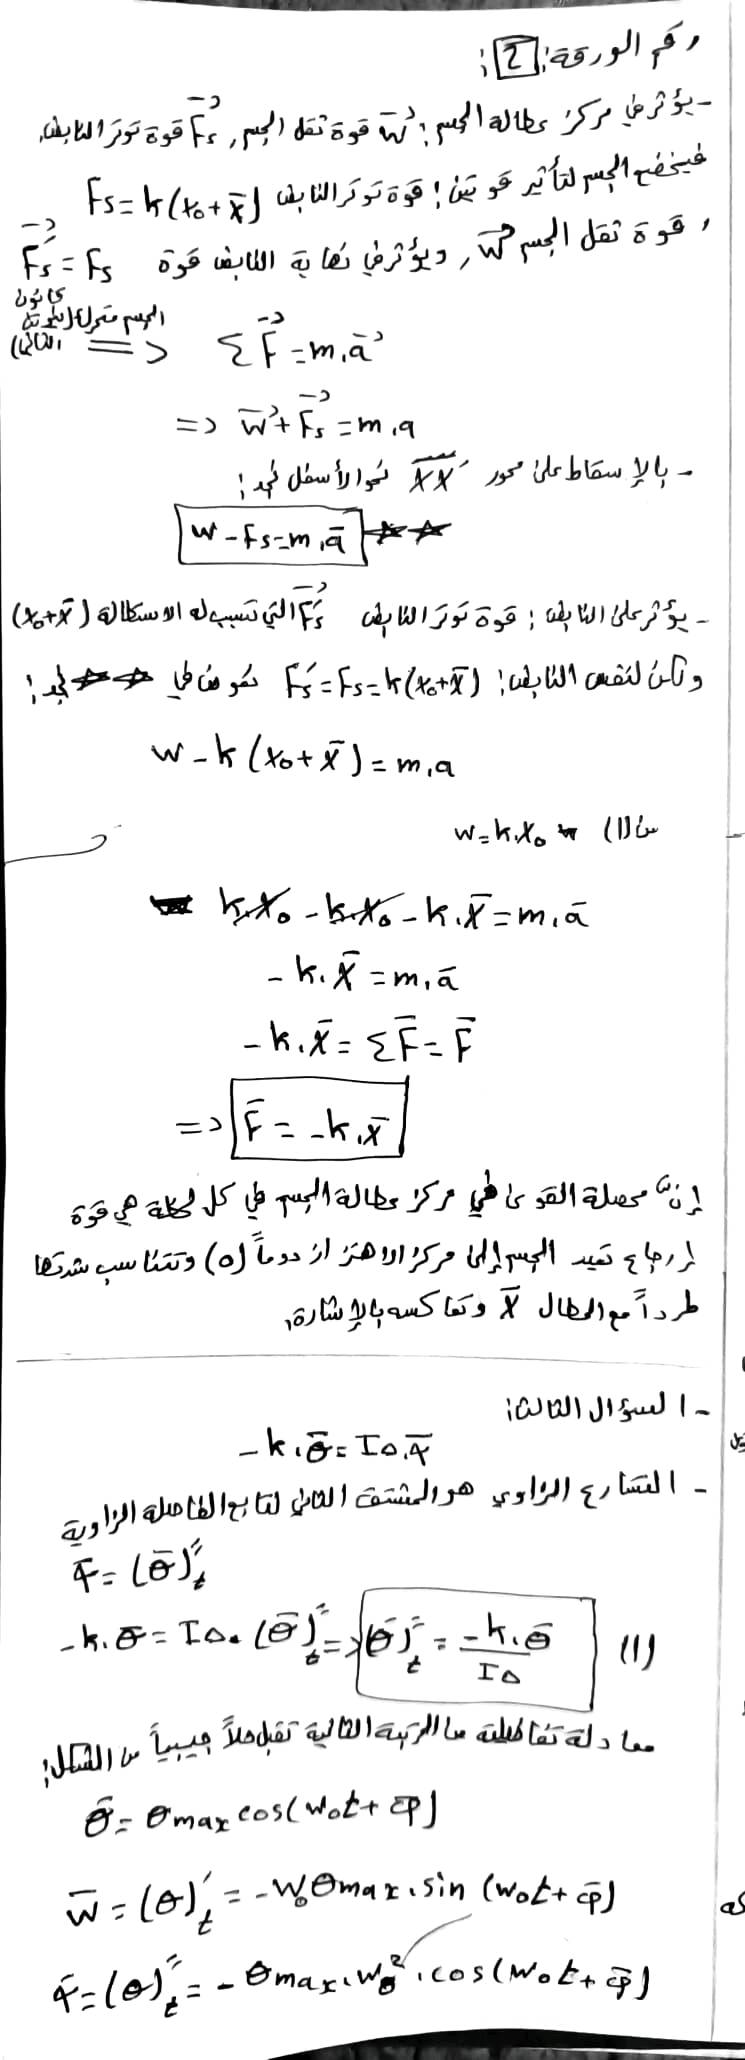 رقم الورقة: 2:
- يؤثر في مركز عطالة الجسم: W قوة ثقل الجسم, Fs قوة توتر النابض,
فيخضع الجسم لتأثير قوتين: قوة توتر النابض Fs = k(x₀+x̄)
, قوة ثقل الجسم W, ويؤثر في نهاية النابض قوة F's = Fs
الجسم متحرك (نيوتن الثاني) <= Σ F = m.a
=> W + Fs = m.a
- بالإسقاط على محور x'x نحو الأسفل نجد:
W - Fs = m.ā **
- يؤثر على النابض: قوة توتر النابض F's التي تسبب له الاستطالة (x₀+x̄)
ولكن لنفس النابض: F's = Fs = k(x₀+x̄) نعوض في ** نجد:
W - k(x₀+x̄) = m.a
من (1) W = k.x₀
k.x₀ - k.x₀ - k.x̄ = m.ā
- k.x̄ = m.ā
- k.x̄ = ΣF̄ = F̄
=> F̄ = -k.x̄
إن محصلة القوى في مركز عطالة الجسم في كل لحظة هي قوة
إرجاع تعيد الجسم إلى مركز الاهتزاز دوماً (o) وتتناسب شدتها
طرداً مع المطال x̄ وتعاكسه بالإشارة,
- السؤال الثالث:
- k.θ̄ = I∆.ᾱ
- التسارع الزاوي هو المشتق الثاني لتابع الفاصلة الزاوية
ᾱ = (θ̄)''t
- k.θ̄ = I∆.(θ̄)''t => (θ̄)''t = -k.θ̄ / I∆ (1)
معادلة تفاضلية من الرتبة الثانية تقبل حلاً جيبياً من الشكل:
θ̄ = θmax cos(ω₀t + φ̄)
ω̄ = (θ)'t = -ω₀θmax.sin(ω₀t + φ̄)
ᾱ = (θ)''t = -θmax.ω₀².cos(ω₀t + φ̄)